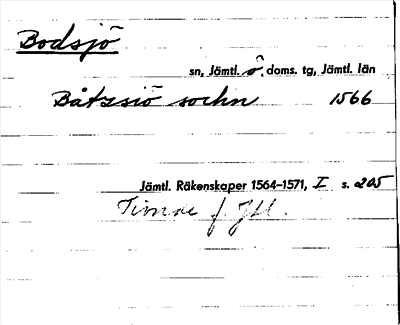 Bodsjö
sn, Jämtl. ö. doms. tg, Jämtl. län
Båtzsiö sochn 1566
Jämtl. Räkenskaper 1564-1571, I s. 205